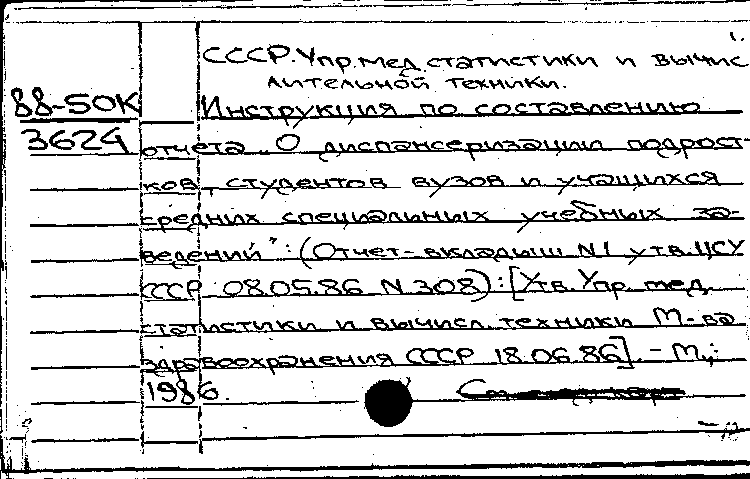 1.
СССР. Упр. мед. статистики и вычис
лительной техники.
88-50К Инструкция по составлению
3624 отчета „О диспансеризации подрост-
ков, студентов вузов и учащихся
средних специальных учебных за-
ведений": (Отчет-вкладыш N1 утв. ЦСУ
СССР 08.05.86 N 308): [Утв. Упр. мед.
статистики и вычисл. техники М-ва
здравоохранения СССР 18.06.86]. - М.,:
1986.